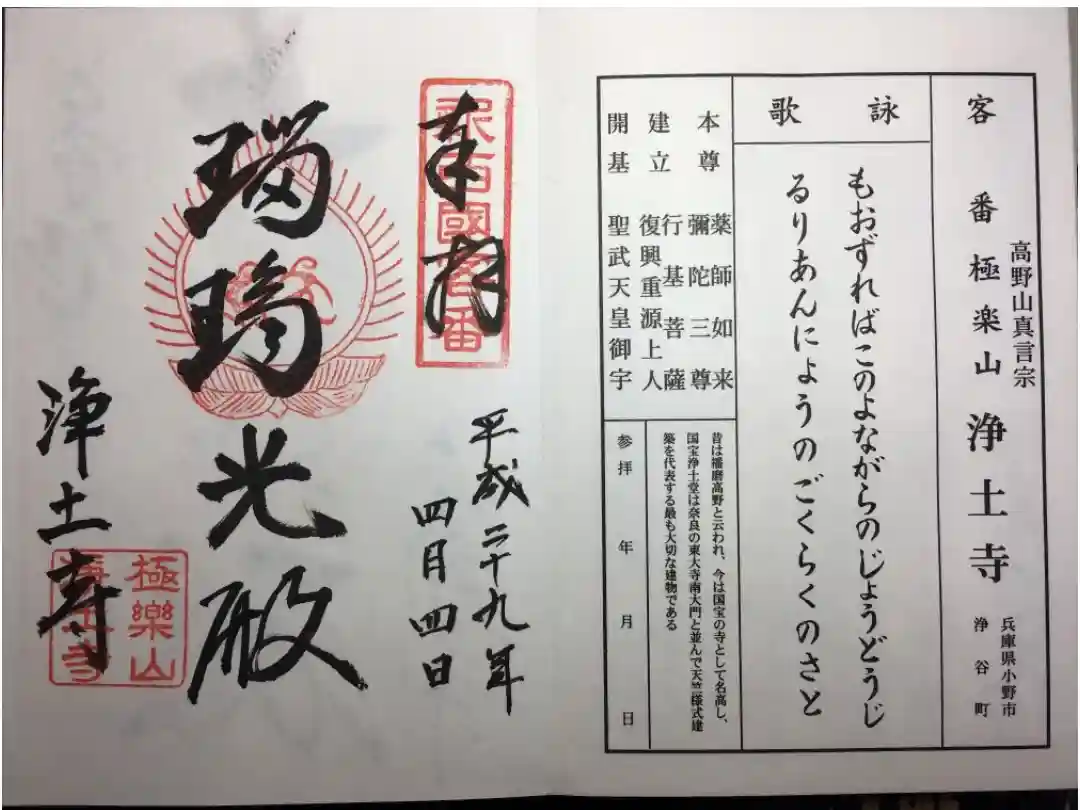 客番極楽山浄土寺
高野山真言宗
兵庫県小野市
浄谷町
詠歌
もおずればこのよながらのじょうどうじ
るりあんにょうのごくらくのさと
本尊
薬師如来
彌陀三尊
建立
行基菩薩
復興重源上人
開基
聖武天皇御宇
昔は播磨高野と云われ、今は国宝の寺として名高し、
国宝浄土堂は奈良の東大寺南大門と並んで天竺様式建
築を代表する最も大切な建物である
参拝 年 月 日
奉拝
西國客番
平成二十九年
四月四日
瑠璃光殿
浄土寺
極樂山
浄土寺